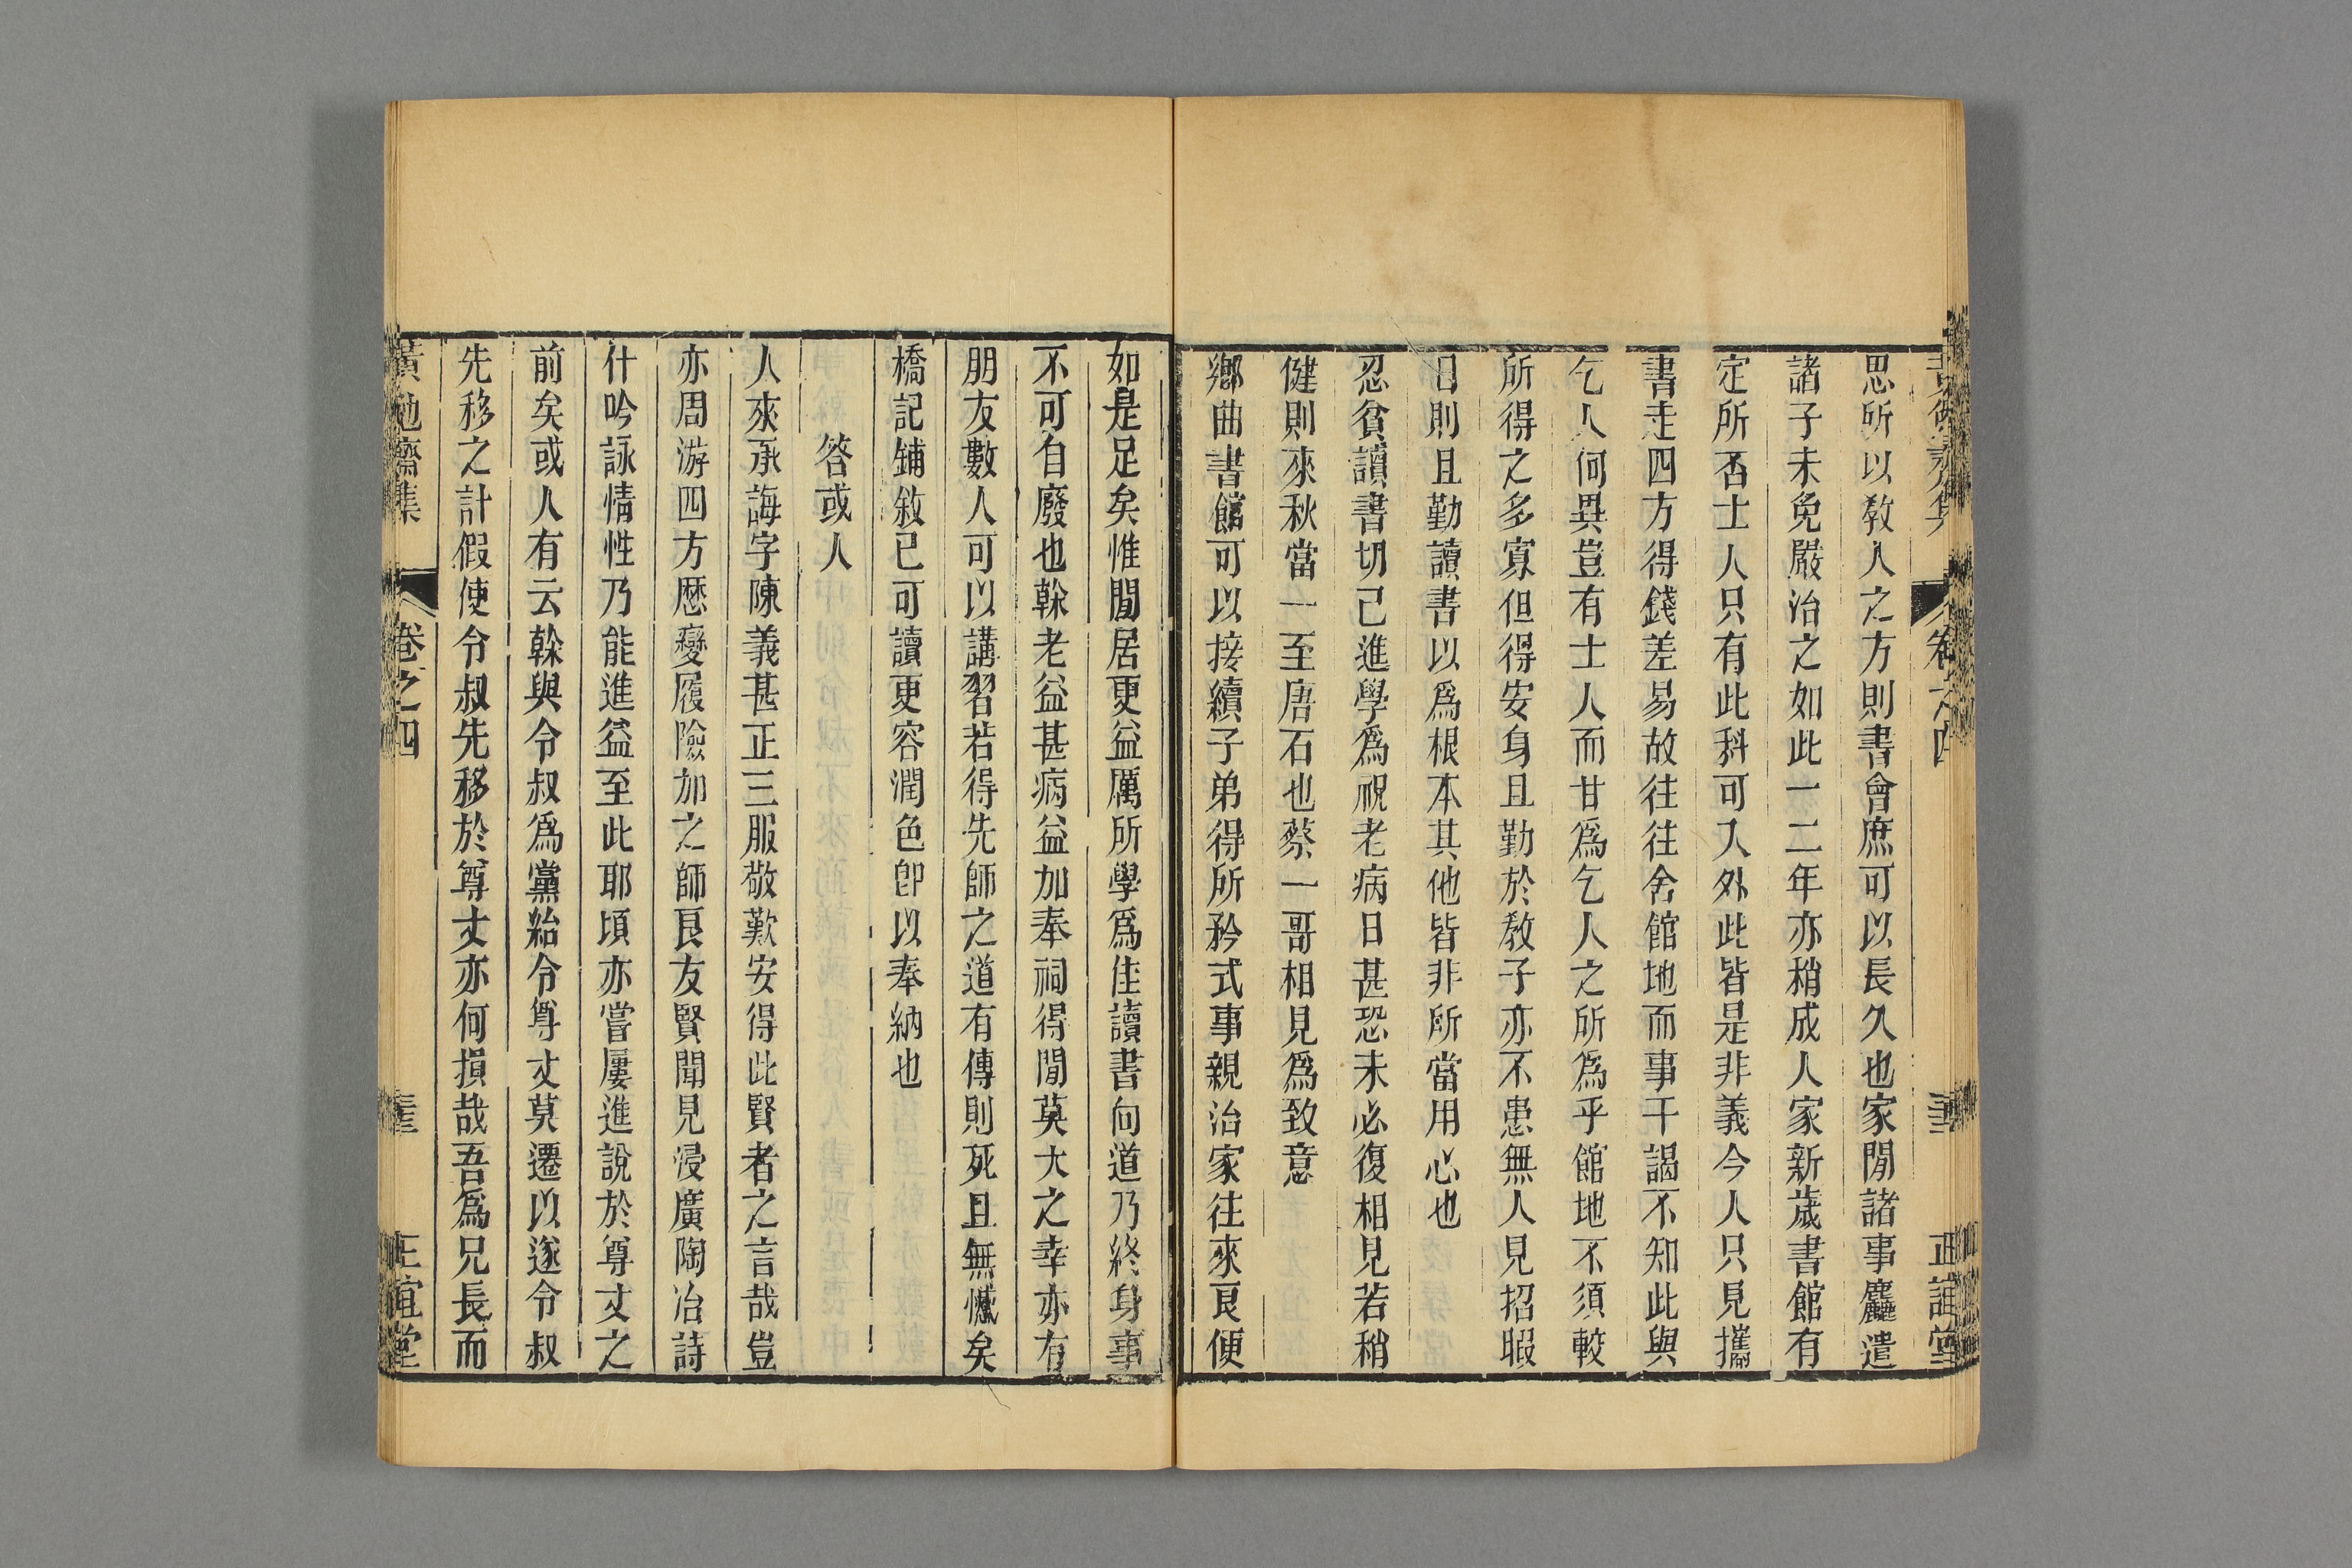 思所以敎人之方則書會庶可以長久也家閒諸事麤遣
諸子未免嚴治之如此一二年亦稍成人家新歲書館有
定所否士人只有此科可入外此皆是非義今人只見攜
書走四方得錢差易故往往舍館地而事干謁不知此與
乞人何異豈有士人而甘爲乞人之所爲乎館地不須較
所得之多寡但得安身且勤於敎子亦不患無人見招暇
日則且勤讀書以爲根本其他皆非所當用心也
忍貧讀書切己進學爲祝老病日甚恐未必復相見若稍
健則來秋當一至唐石也蔡一哥相見爲致意
鄉曲書館可以接續子弟得所矜式事親治家往來良便
如是足矣惟閒居更益厲所學爲佳讀書向道乃終身事
不可自廢也榦老益甚病益加奉祠得閒莫大之幸亦有
朋友數人可以講習若得先師之道有傳則死且無憾矣
橋記鋪敘已可讀更容潤色卽以奉納也
答或人
人來承誨字陳義甚正三服敬歎安得此賢者之言哉豈
亦周游四方歷變履險加之師良友賢聞見浸廣陶冶詩
什吟詠情性乃能進益至此耶頃亦嘗屢進說於尊丈之
前矣或人有云榦與令叔爲黨紿令尊丈莫遷以遂令叔
先移之計假使令叔先移於尊丈亦何損哉吾爲兄長而
黃勉齋集 卷之四 正誼堂